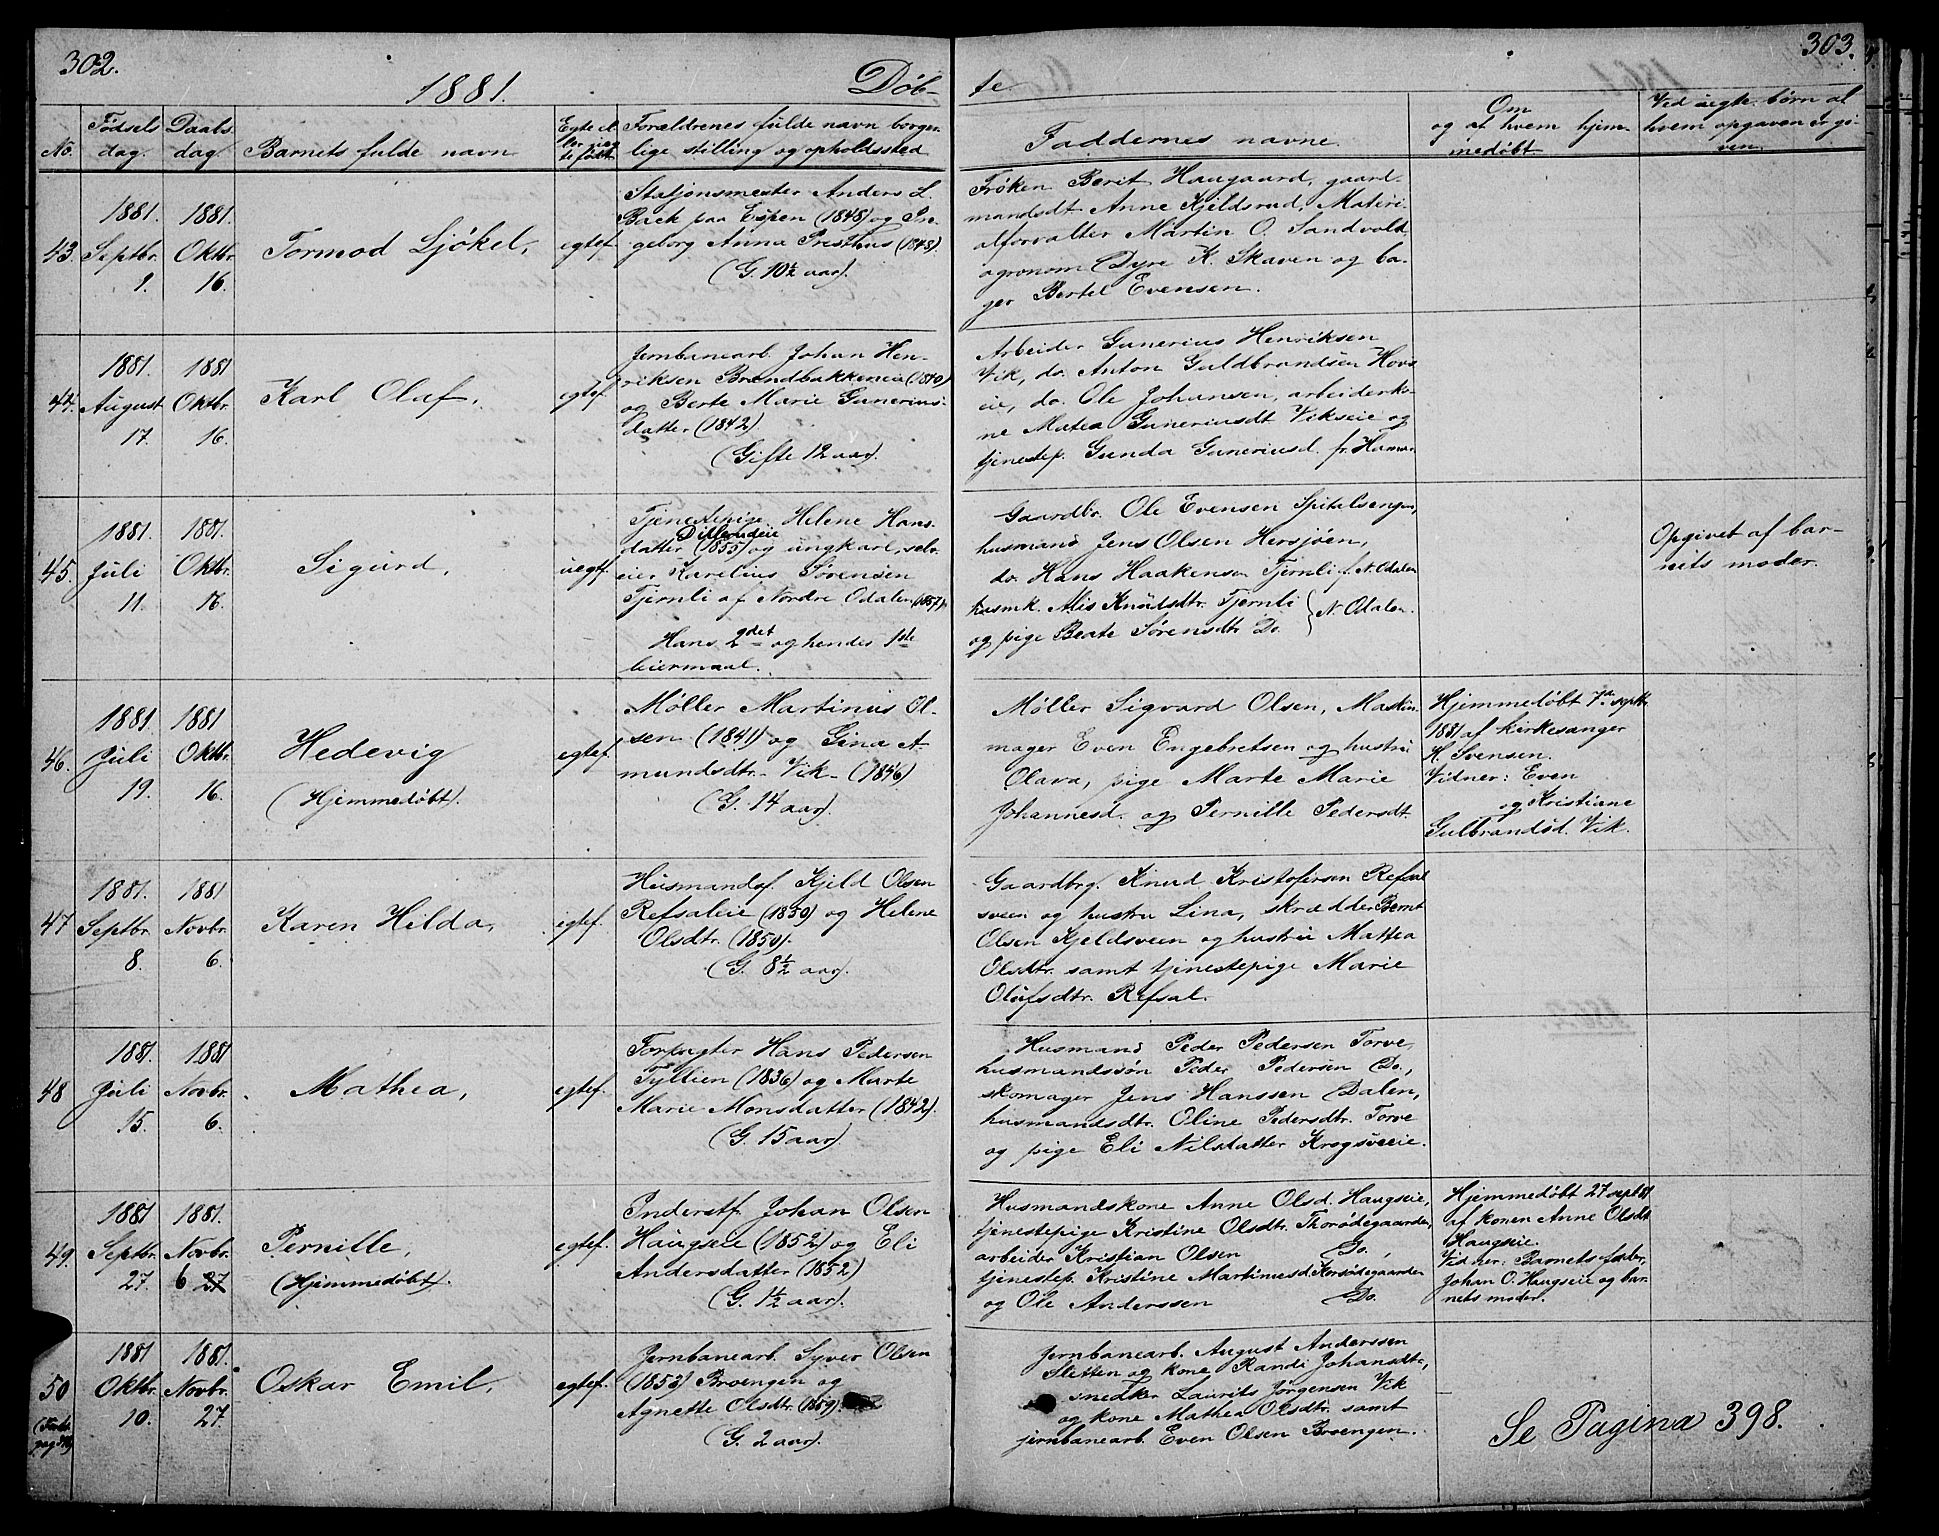 302.
1881.
Døb-
No.
Fødsels
dag.
Daabs
dag.
Barnets fulde navn
Egte el
ler uæg
te født
Forældrenes fulde navn borger
lige stilling og opholdssted
43.
1881.
Septbr.
9.
1881.
Oktbr.
16.
Tormod Ljøkel,
egtef.
Stasjonsmester Anders L
Back paa Espen (1848) og In-
geborg Anna Presthus (1848).
(G. 10½ aar).
44.
1881.
August
17.
1881
Oktbr.
16.
Karl Olaf,
egtef.
Jernbanearb. Johan Hen-
riksen Brændbakkeneie (1840)
og Berte Marie Gunerius-
datter (1842).
(Gifte 12 aar).
45.
1881.
Juli
11.
1881.
Oktbr.
16.
Sigurd,
uegtf.
Tjenestepige Helene Hans-
Dillerudeie
datter (1855) og ungkarl, selv-
eier Karelius Sørensen
Tjernli af Nordre Odalen (1857).
Hans 2det og hendes 1ste
leiermaal.
46.
1881.
Juli
19.
1881
Oktbr.
16.
Hedevig
(Hjemmedøbt).
egtef.
Møller Martinus Ol-
sen (1841) og Gina A-
mundsdtr. Vik- (1846)
(G. 14 aar).
47
1881.
Septbr.
8.
1881
Novbr.
6.
Karen Hilda,
egtef.
Husmandsf. Kjeld Olsen
Refsaleie (1850) og Helene
Olsdtr. (1850).
(G. 8½ aar).
48
1881.
Juli
15.
1881
Novbr.
6.
Mathea,
egtef.
Forpagter Hans Pedersen
Tyllien (1836) og Marte
Marie Monsdatter (1842).
(G. 15 aar).
49.
1881
Septbr.
27.
1881.
Novbr.
6 27
Pernille,
(Hjemmedøbt).
egtef.
Inderstf. Johan Olsen
Haugseie (1852) og Eli
Andersdatter (1852)
(G. 1½ aar).
50
1881
Oktbr.
10.
1881.
Novbr.
27.
Oskar Emil,
egtef.
Jernbanearb. Syver Olsen
(1853) Broengen og
Agnette Olsdtr. (1859).
(G. 2 aar).
303.
te.
Faddernes navne.
Om
og af hvem hjem-
medøbt
Ved uegte børn af
hvem opgaven er gi-
ven.
Frøken Berit Haugaard, gaard-
mandsdt Anne Kjeldsrud, Materi-
alforvalter Martin O. Sandvold,
agronom Dyre K. Skaven og ba-
ger Bertel Evensen.
Arbeider Gunerius Henriksen
Vik, do. Anton Guldbrandsen Hovs
eie, do. Ole Johansen, arbeiderko-
ne Matea Guneriusdt Vikseie og
tjenestep. Gunda Guneriusd. fr. Hamar.
Gaardbr. Ole Evensen Spitalsengen,
husmand Jens Olsen Hersjøen,
do. Hans Haakensen Tjernli f. N. Odalen
husmk. Alis Knutsdtr. Tjernli } N. Odalen.
og pige Beate Sørensdtr Do.
Opgivet af bar-
nets moder.
Møller Sigvard Olsen, Maskin-
mager Even Engebretsen og hustru
Olava, pige Marte Marie
Johannesd. og Pernille Pedersdt.
Hjemmedøbt 7de septbr.
1881 af kirkesanger
H. Svensen.
Vidner: Even
og Kristiane
Gulbrandsd. Vik.
Gaardbrg. Knud Kristofersen Refsal
sveen og hustru Lina, skrædder Bernt
Olsen Kjeldsveen og hustru Mattea
Olsdtr. samt tjenestepige Marie
Olufsdtr. Refsal.
Husmand Peder Pedersen Torve,
husmandssøn Peder Pedersen Do.,
skomager Jens Hanssen Dalen,
husmandsdtr. Oline Pedersdtr. Torve
og pige Eli Nilsdatter Krogsveeie.
Husmandskone Anne Olsd. Haugseie,
tjenestepige Kristine Olsdtr. Thorødegaarden,
arbeider Kristian Olsen Do.,
tjenestep. Kristine Martinusd. Korsødegaarden
og Ole Anderssen Do.
Hjemmedøbt 27 sept 81
af konen Anne Olsdt
Haugseie.
Vidner: Barnets fader
Johan O. Haugseie og bar-
nets moder.
Jernbanearb. August Anderssen
Sletten og kone Randi Johansdtr,
snedker Laurits Jørgensen Vik
og kone Mathea Olsdtr. samt
jernbanearb. Even Olsen Broengen.
Se Pagina 398.